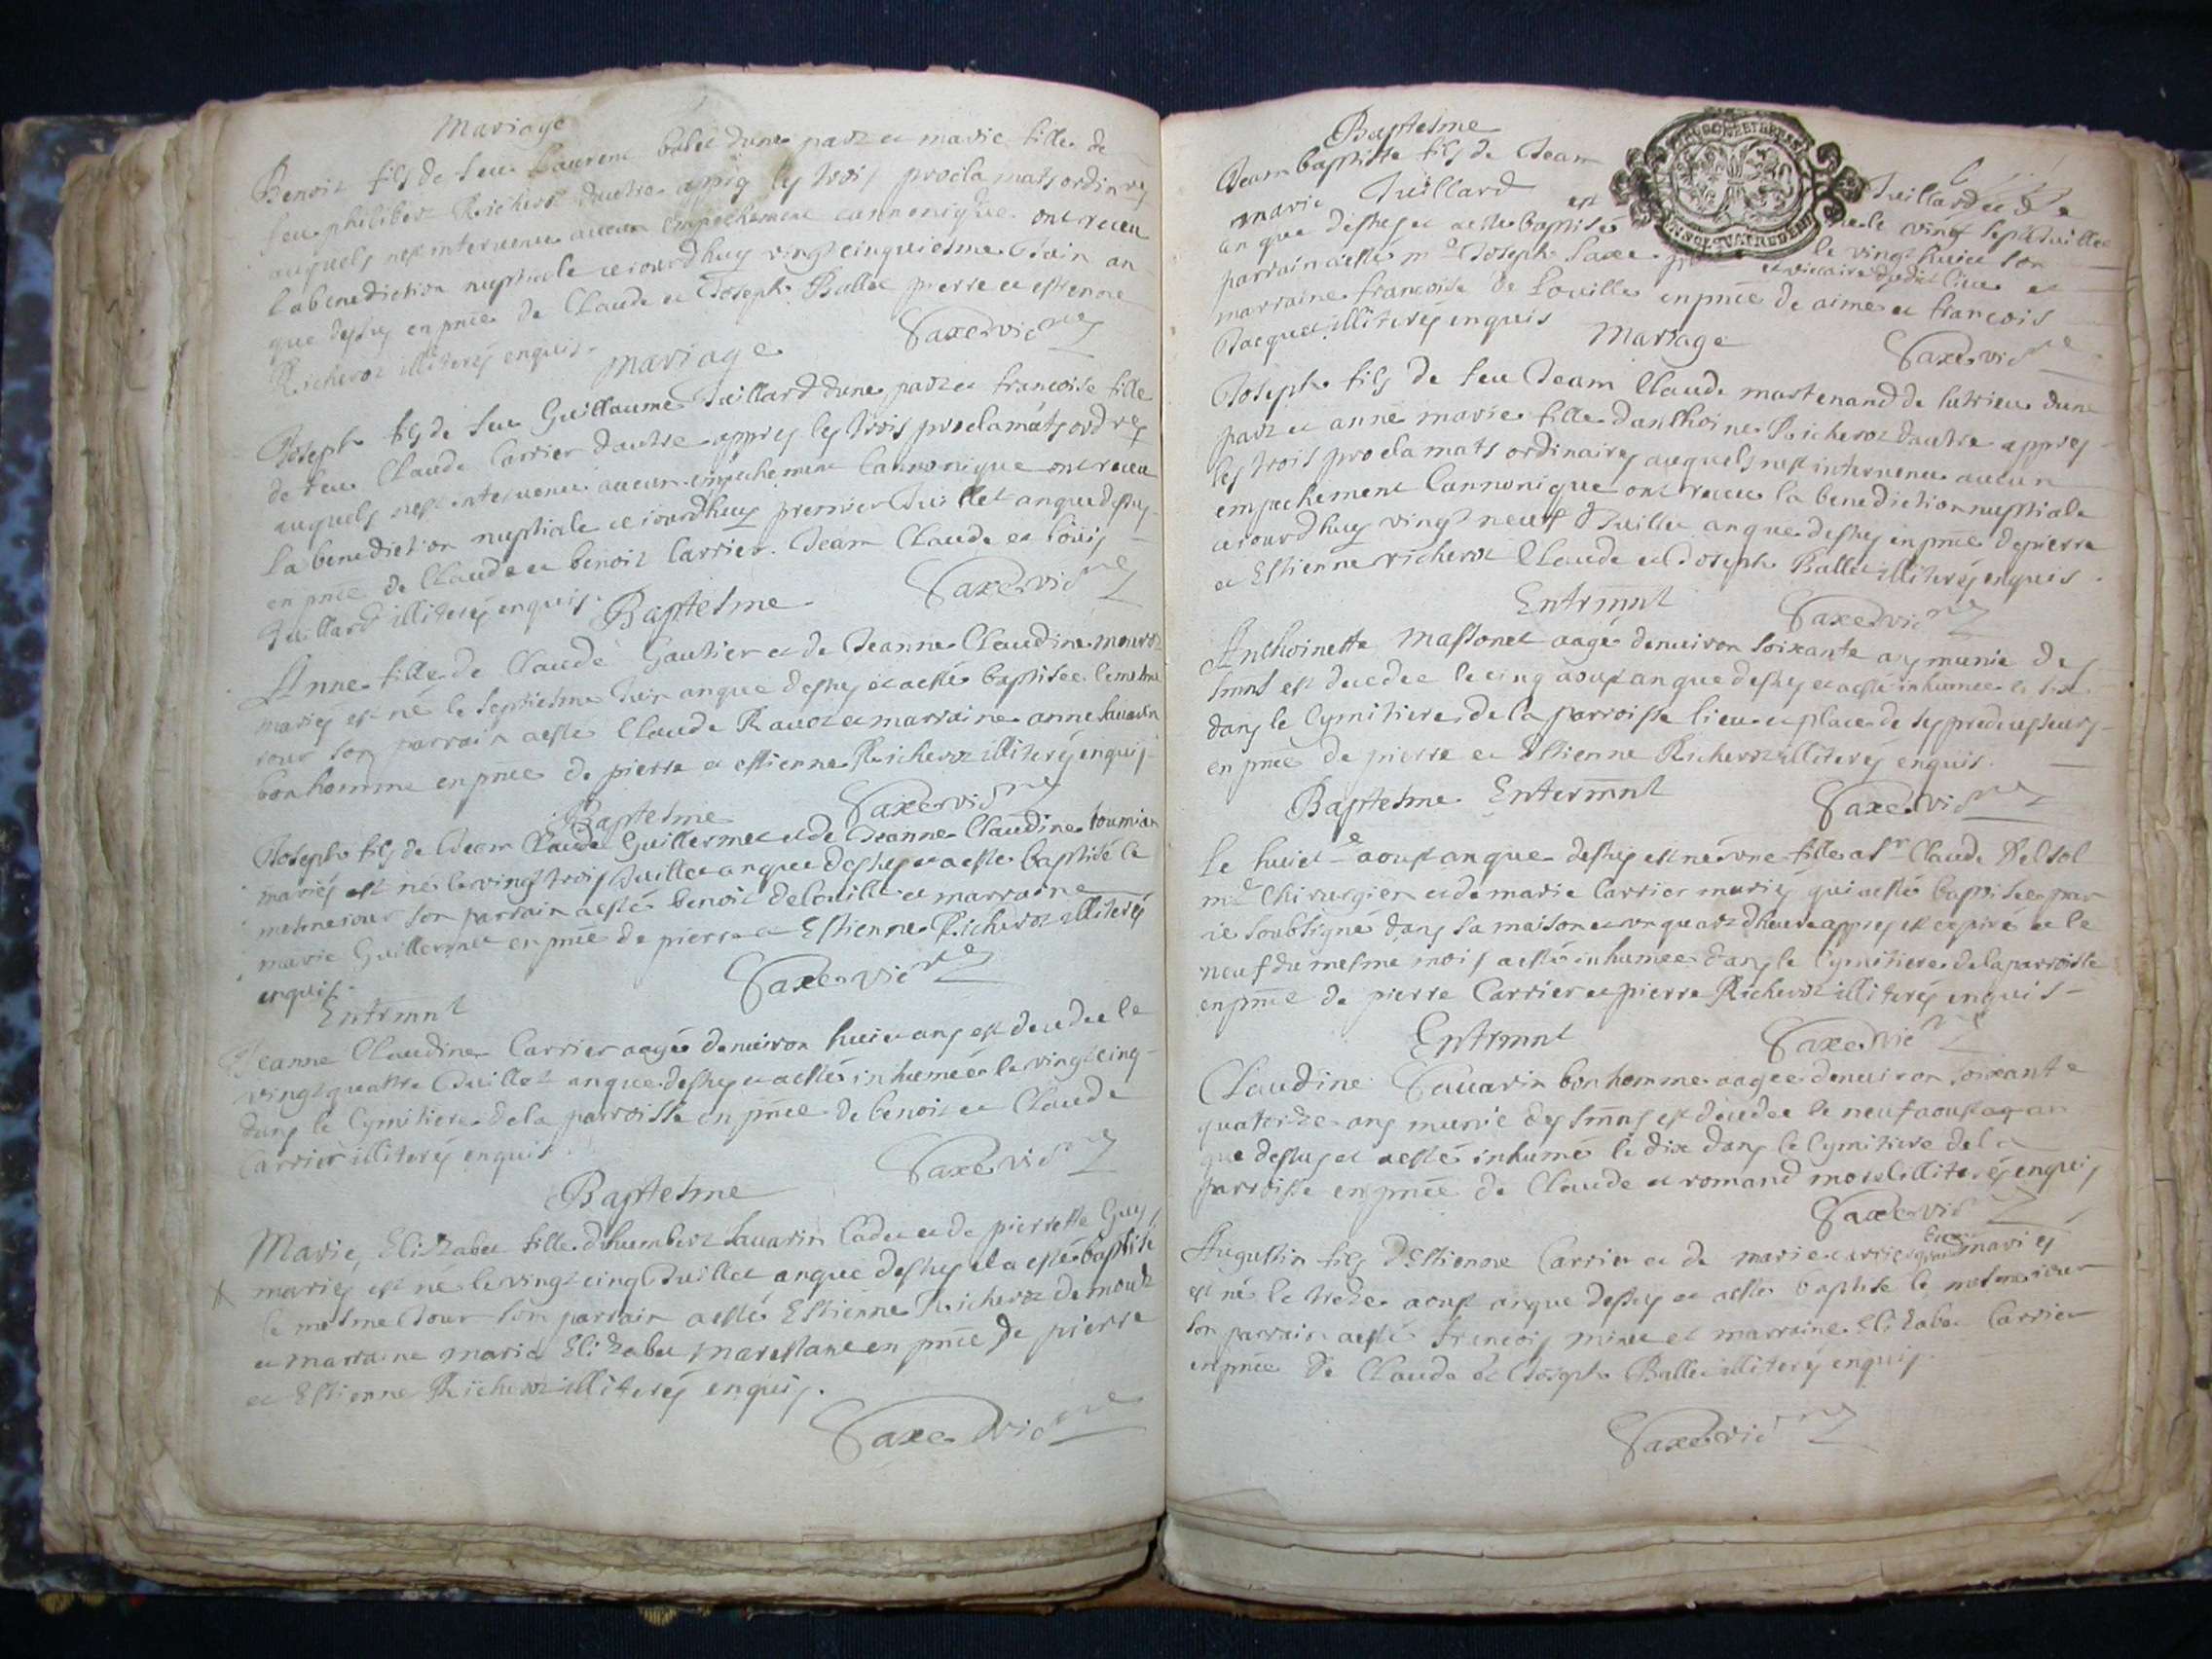 Mariage
Benoit fils de feu Laurent balet dune part et marie fille de
feu philibert Richerot dautre apres les trois proclamats ordinres
auquels nest intervenu aucun empechement cannonique ont receu
la benediction nuptiale ce iourdhuy vingt cinquiesme Juin an
que dessus en pnce de Claude et Joseph Ballet pierre et estienne
Richerot illiteres enquis.
Saxe vicre
mariage
Joseph fils de feu Guillaume Juillard dune part et francoise fille
de feu Claude Carrier dautre appres les trois proclamats ordres
auquels nest intervenu aucun empechement Cannonique ont receu
la benediction nuptiale ce iourdhuy premier Juillet an que dessus
en pnce de Claude et benoit Carrier. Jean Claude et louis
Juillard illiteres enquis.
Saxe vicre
Baptesme
Anne fille de Claude Gautier et de Jeanne Claudine
maries est né le septiesme Juin an que dessus et a esté baptisee le mesme
iour son parrain a esté Claude Ravot et marraine anne Savarin
bonhomme en pnce de pierre et estienne Richerot illiteres enquis.
Saxe vicre
Baptesme
Joseph fils de Jean Claude Guillermet et de Jeanne Claudine
mariés est né le vingt trois Juillet an que dessus et a esté baptisé le
mesme iour son parrain a esté benoit delouille et marraine
marie Guillermet en pnce de pierre et Estienne Richerot illiterés
enquis.
Saxe vicre
Entrmnt
Jeanne Claudine Carrier aagée denuiron huict ans est decedee le
vingt quattre Juillet an que dessus et a esté inhumée le vingt cinq
dans le Cymitiere de la parroisse en pnce de benoit et Claude
Carrier illiteres enquis.
Saxe vicre
Baptesme
Marie Elizabet fille dhumbert Savarin Cadet et de pierrette Guy
maries est né le vingt cinq Juillet an que dessus et a esté baptisé
le mesme Jour son parrain a esté Estienne Richerot
et marraine marie Elizabet en pnce de pierre
et Estienne Richerot illiterés enquis.
Saxe vicre
Baptesme
Jean baptiste fils de Jean Juillard et de
marie Juillard est né le vingt sept Juillet
an que dessus et a esté baptisé le vingt huict son
parrain a esté mre Joseph Saxe et vicaire dudit lieu et
marraine francoise de Louille en pnce de aime et francois
Jacquet illiteres enquis
Saxe vicre
Mariage
Joseph fils de feu Jean Claude martenand de lutrieu dune
part et anne marie fille danthoine Richerot dautre appres
les trois proclamats ordinaires auquels nest intervenu aucun
empechement Cannonique ont receu la benediction nuptiale
ce iourdhuy vingt neuf Juillet an que dessus en pnce de pierre
et Estienne richerot Claude et Joseph Ballet illiterés enquis.
Saxe vicre
Entrmnt
Anthoinette Massonet aagé denuiron soixante ans munie des
smnts est decedee le cinq aoust an que dessus et a esté inhumee le six
dans le Cymitiere de la parroisse lieu et place de ses predecesseurs
en pnce de pierre et Estienne Richerot illiterés enquis.
Saxe vicre
Baptesme Entermnt
Le huict e aoust an que dessus est né une fille a Sr Claude Delsol
mre Chirurgien et de marie Carrier maries qui a esté baptisee par
ie soubsigné dans sa maison et un quart dheure appres est expiré et le
neuf du mesme mois a esté inhumee dans le Cymitiere de la parroisse
en pnce de pierre Carrier et pierre Richerot illiterés enquis
Saxe vicre
Entrmnt
Claudine Savarin bonhomme aagee denuiron soixante
quatorze ans munie des smnts est decedee le neuf aoust an
que dessus et a esté inhumé le dix dans le Cymitiere de la
parroisse en pnce de Claude et romand morel illiterés enquis
Saxe vicre
Augustin fils dEstienne Carrier et de marie mariés
est né le treze aoust an que dessus et a esté baptisé le mesme iour
son parrain a esté francois et marraine Elizabet Carrier
en pnce de Claude et Joseph Ballet illiterés enquis.
Saxe vicre